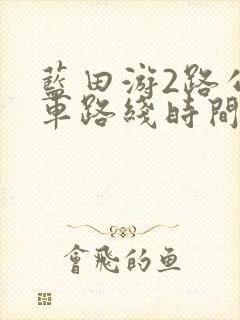 藍田游2路公
車路綫時間
會飛的魚